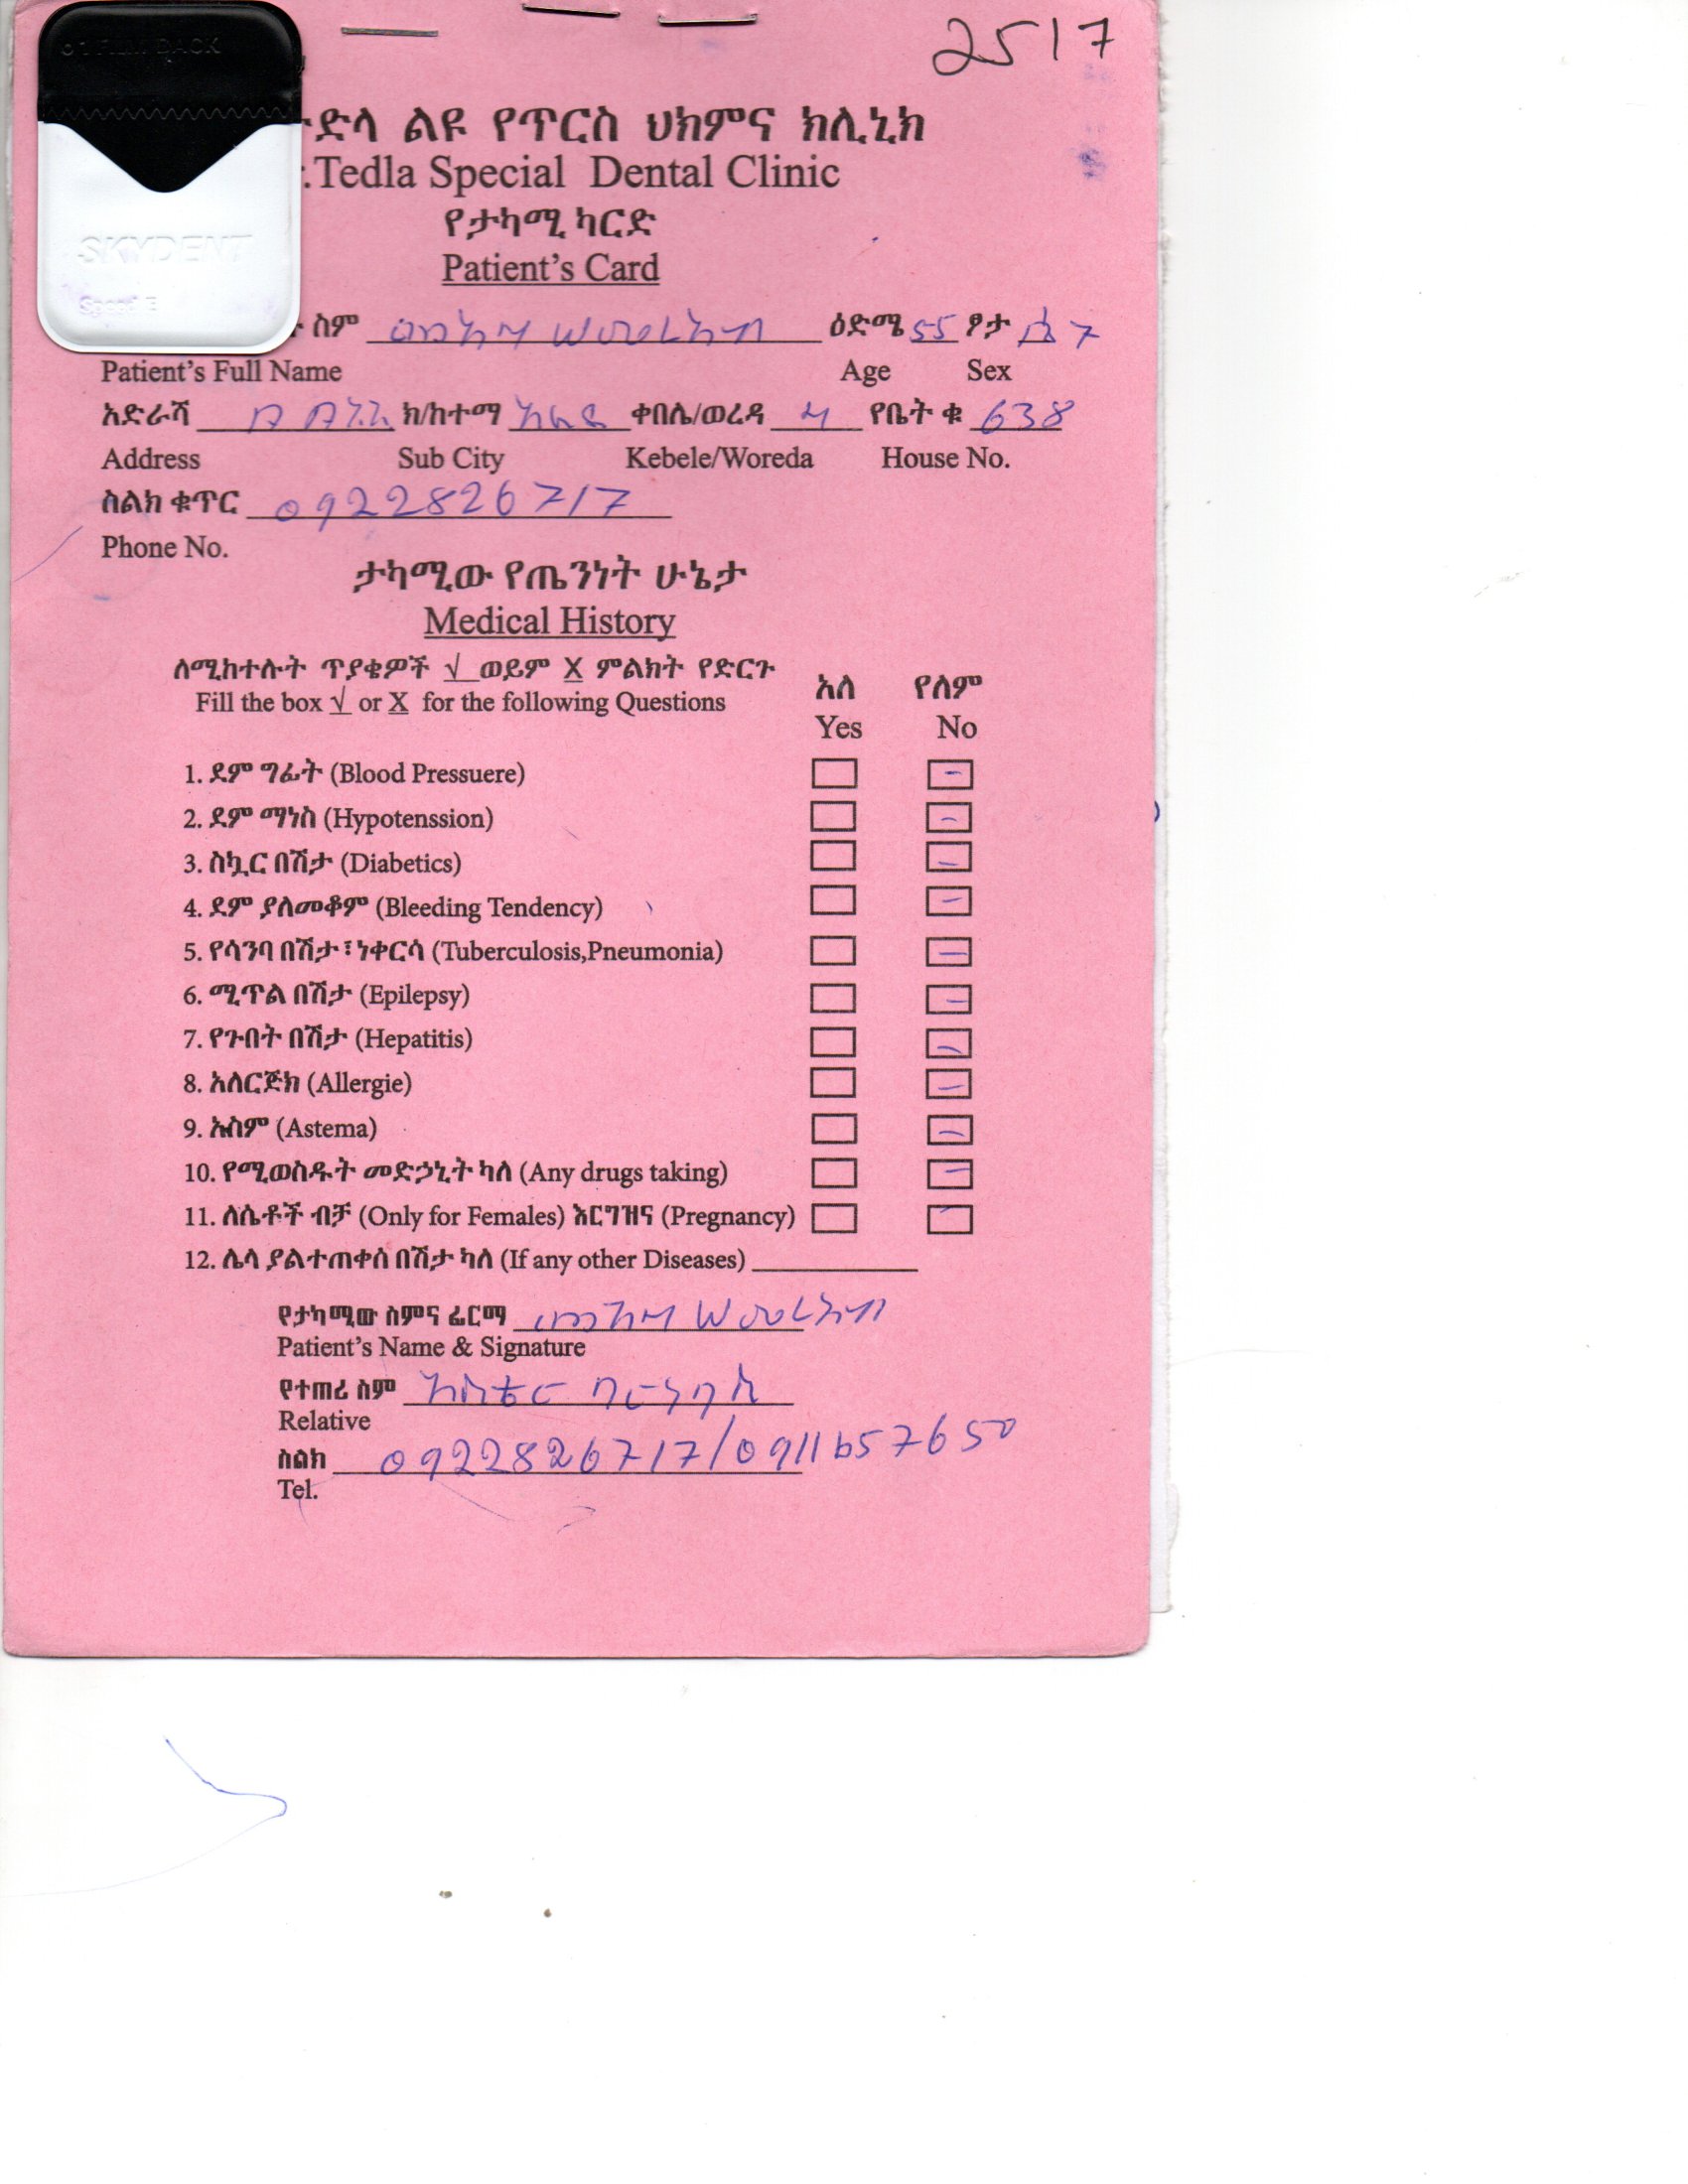 2517
ድላ ልዩ የጥርስ ህክምና ክሊኒክ
.Tedla Special Dental Clinic
የታካሚ ካርድ
Patient's Card
SKYDENT
Speed E
ስም ዕድሜ 55 ፆታ
Patient's Full Name Age Sex
አድራሻ ክ/ከተማ ቀበሌ/ወረዳ የቤት ቁ 638
Address Sub City Kebele/Woreda House No.
ስልክ ቁጥር 0922826717
Phone No.
ታካሚው የጤንነት ሁኔታ
Medical History
ለሚከተሉት ጥያቄዎች √ ወይም X ምልክት የድርጉ
Fill the box √ or X for the following Questions
አለ የለም
Yes No
1. ደም ግፊት (Blood Pressuere) -
2. ደም ማነስ (Hypotenssion) -
3. ስኳር በሽታ (Diabetics) -
4. ደም ያለመቆም (Bleeding Tendency) -
5. የሳንባ በሽታ፣ነቀርሳ (Tuberculosis,Pneumonia) -
6. ሚጥል በሽታ (Epilepsy) -
7. የጉበት በሽታ (Hepatitis) -
8. አለርጅክ (Allergie) -
9. አስም (Astema) -
10. የሚወስዱት መድኃኒት ካለ (Any drugs taking) -
11. ለሴቶች ብቻ (Only for Females) እርግዝና (Pregnancy)
12. ሌላ ያልተጠቀሰ በሽታ ካለ (If any other Diseases)
የታካሚው ስምና ፊርማ
Patient's Name & Signature
የተጠሪ ስም
Relative
ስልክ 0922826717/0911657650
Tel.